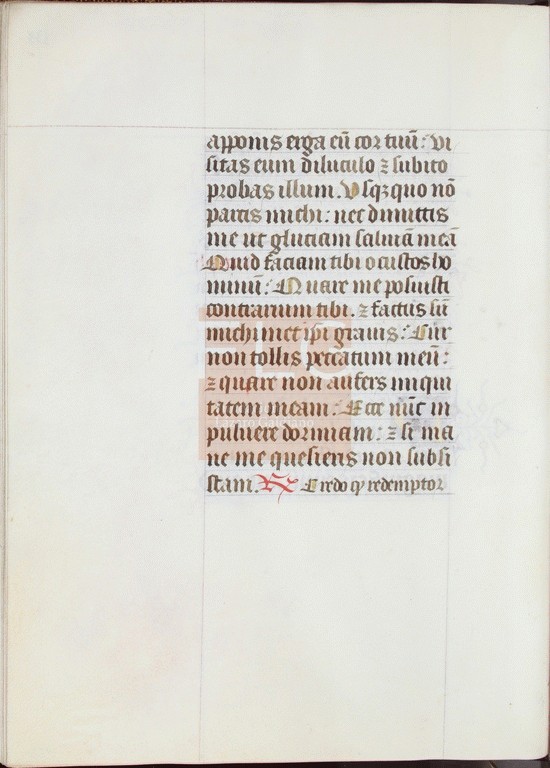 apponis erga eū cor tuū: Vi
sitas eum diluculo ⁊ subito
probas illum. Vsqꝫ quo nō
parcis michi: nec dimittis
me ut glutiam saliuā meā
Quid faciam tibi o custos ho
minū: Quare me posuisti
contrarium tibi. ⁊ factus sū
michi met ip̄i grauis: Cur
non tollis peccatum meū:
⁊ quare non aufers iniqui
tatem meam: Ecce nūc in
puluere dormiam: ⁊ si ma
ne me quesieris non subsi
stam. ℟ Credo ꝙ redemptor